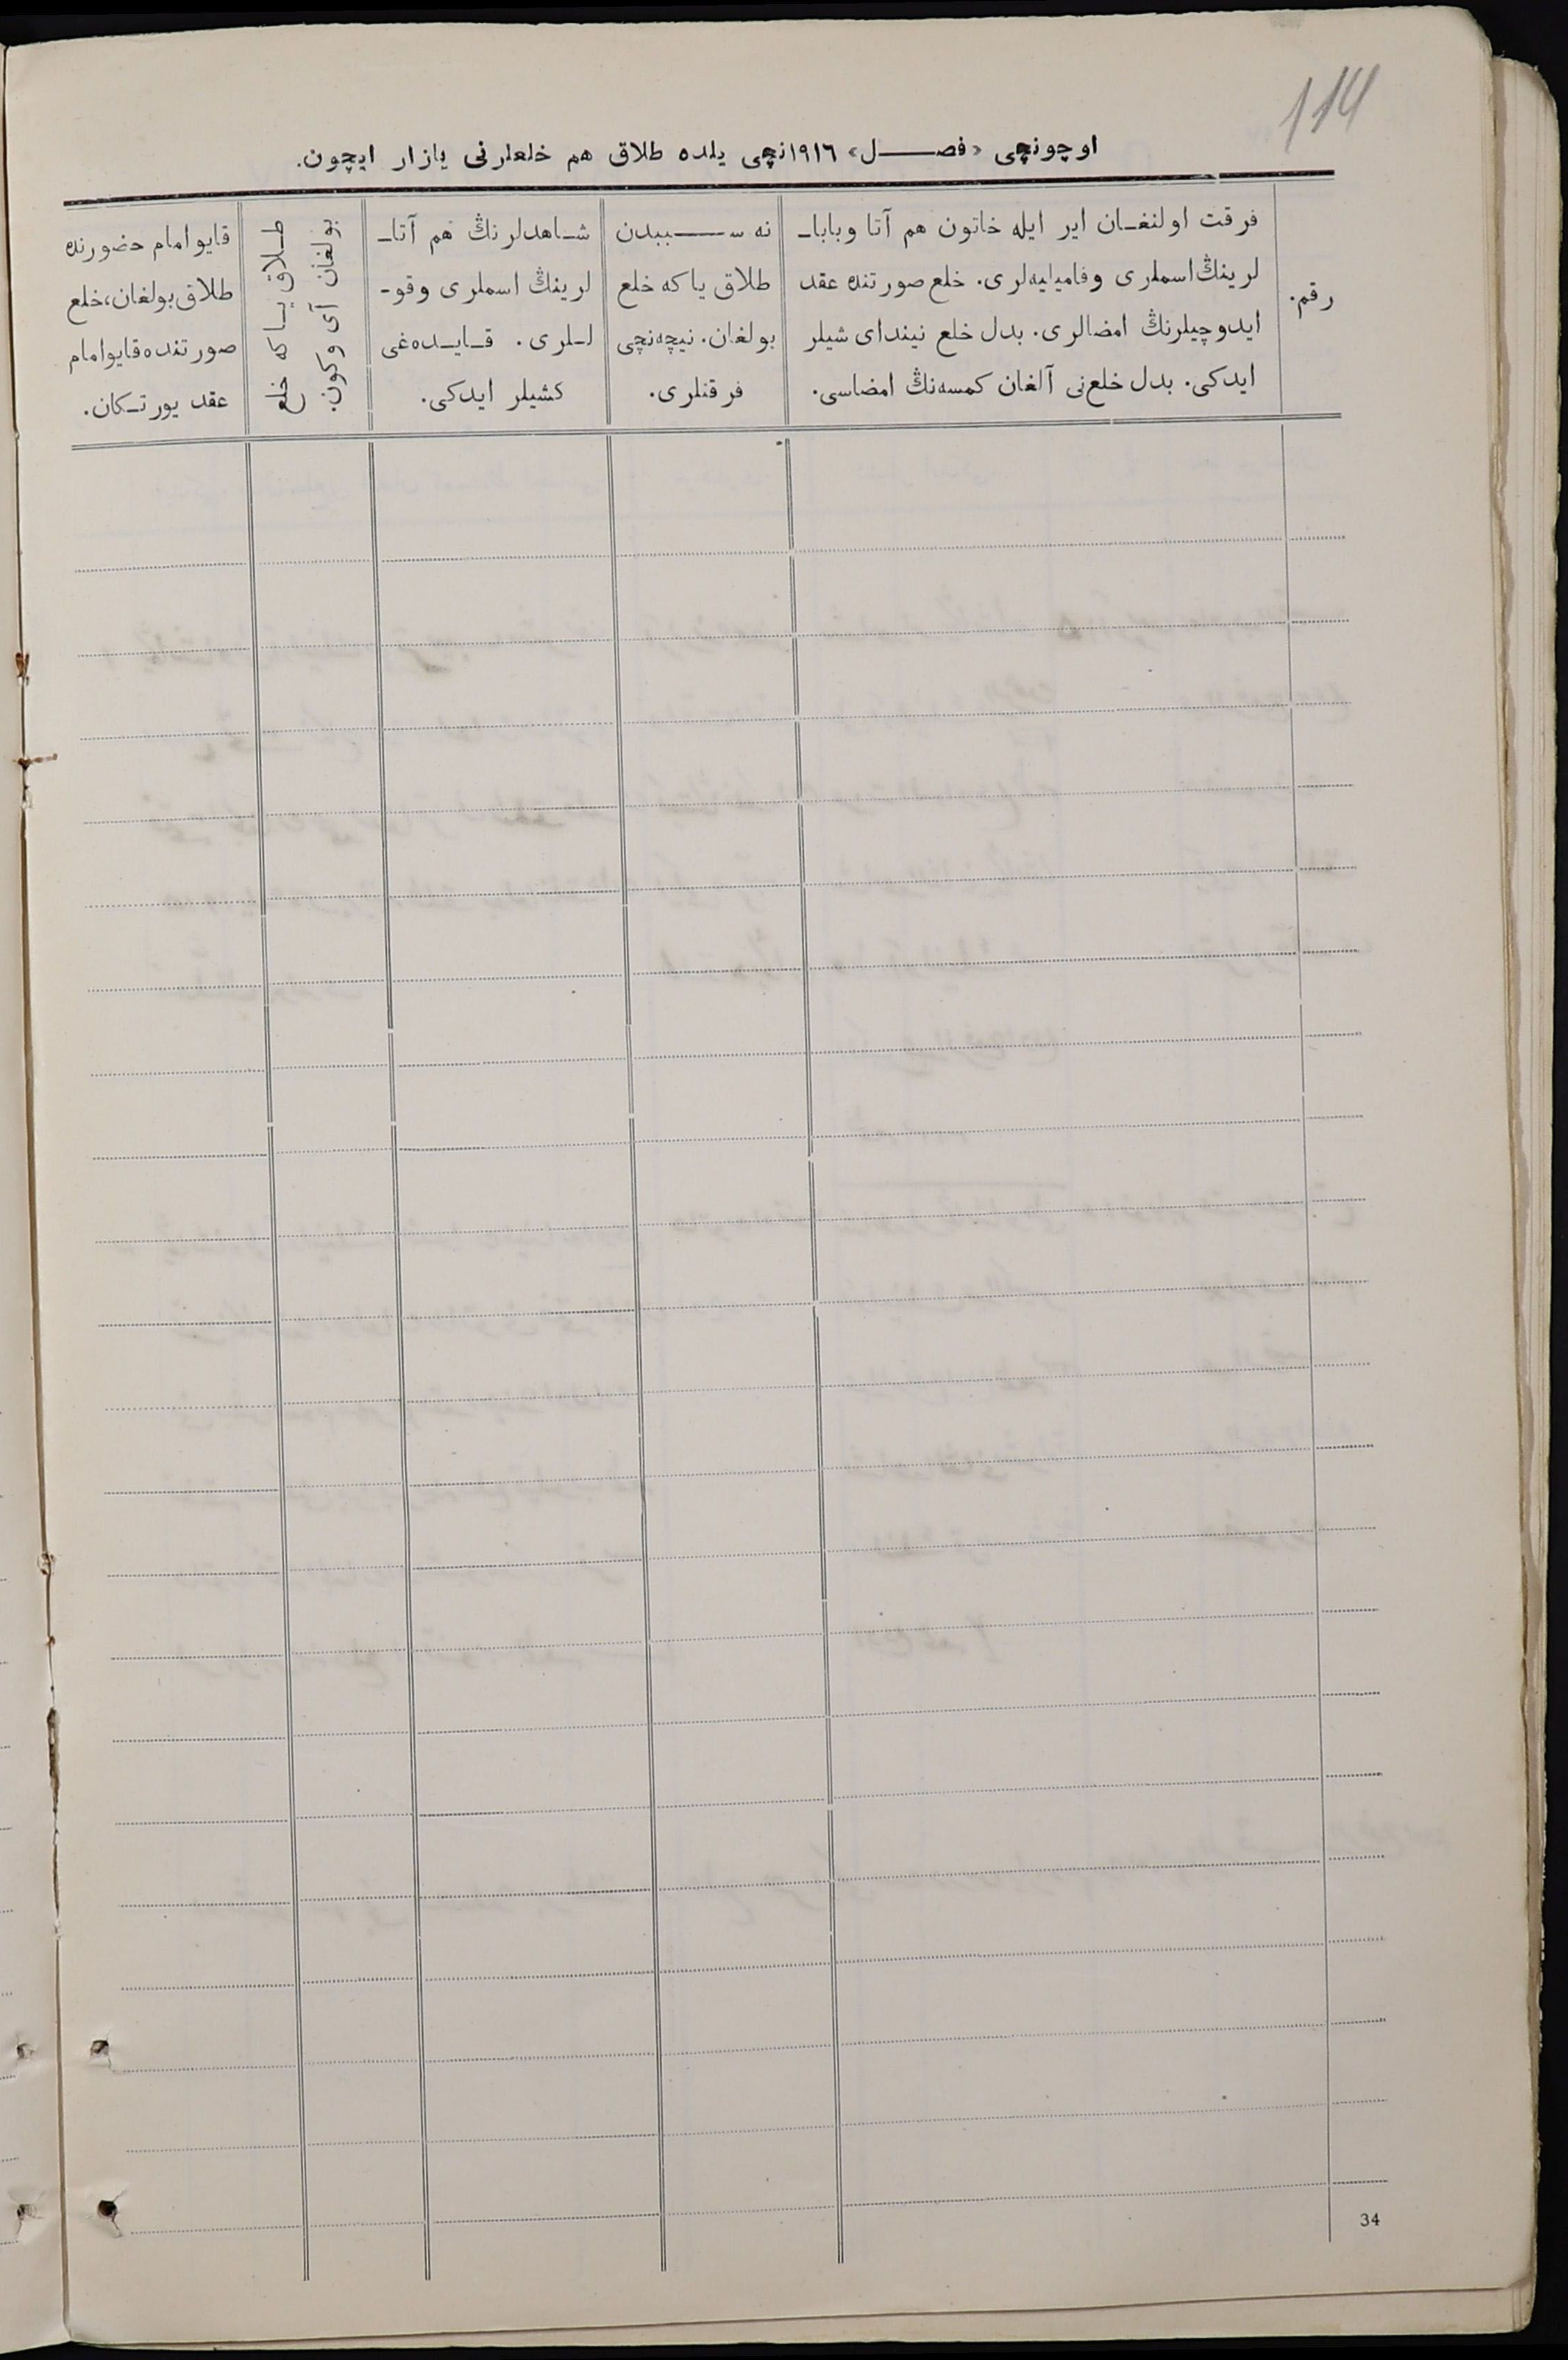 114
اوچونچی «فصل» ١٩١٦نچی یلده طلاق هم خلعلرنی یازار ایچون.
رقم.
فرقت اولنغان ایر ایله خاتون هم آتا وبابا-
لرینڭ اسملری وفامیلیه‌لری. خلع صورتنده عقد
ایدوچیلرنڭ امضالری. بدل خلع نیندای شیلر
ایدکی. بدل خلع‌نی آلغان کمسه‌نڭ امضاسی.
نه سببدن
طلاق یاکه خلع
بولغان. نیچه‌نچی
فرقتلری.
شاهدلرنڭ هم آتا-
لرینڭ اسملری وقو-
للری. قایده‌غی
کشیلر ایدکی.
طلاق یاکه خلع
بولغان آی وکون.
قایو امام حضورنده
طلاق بولغان، خلع
صورتنده قایو امام
عقد یورتکان.
34